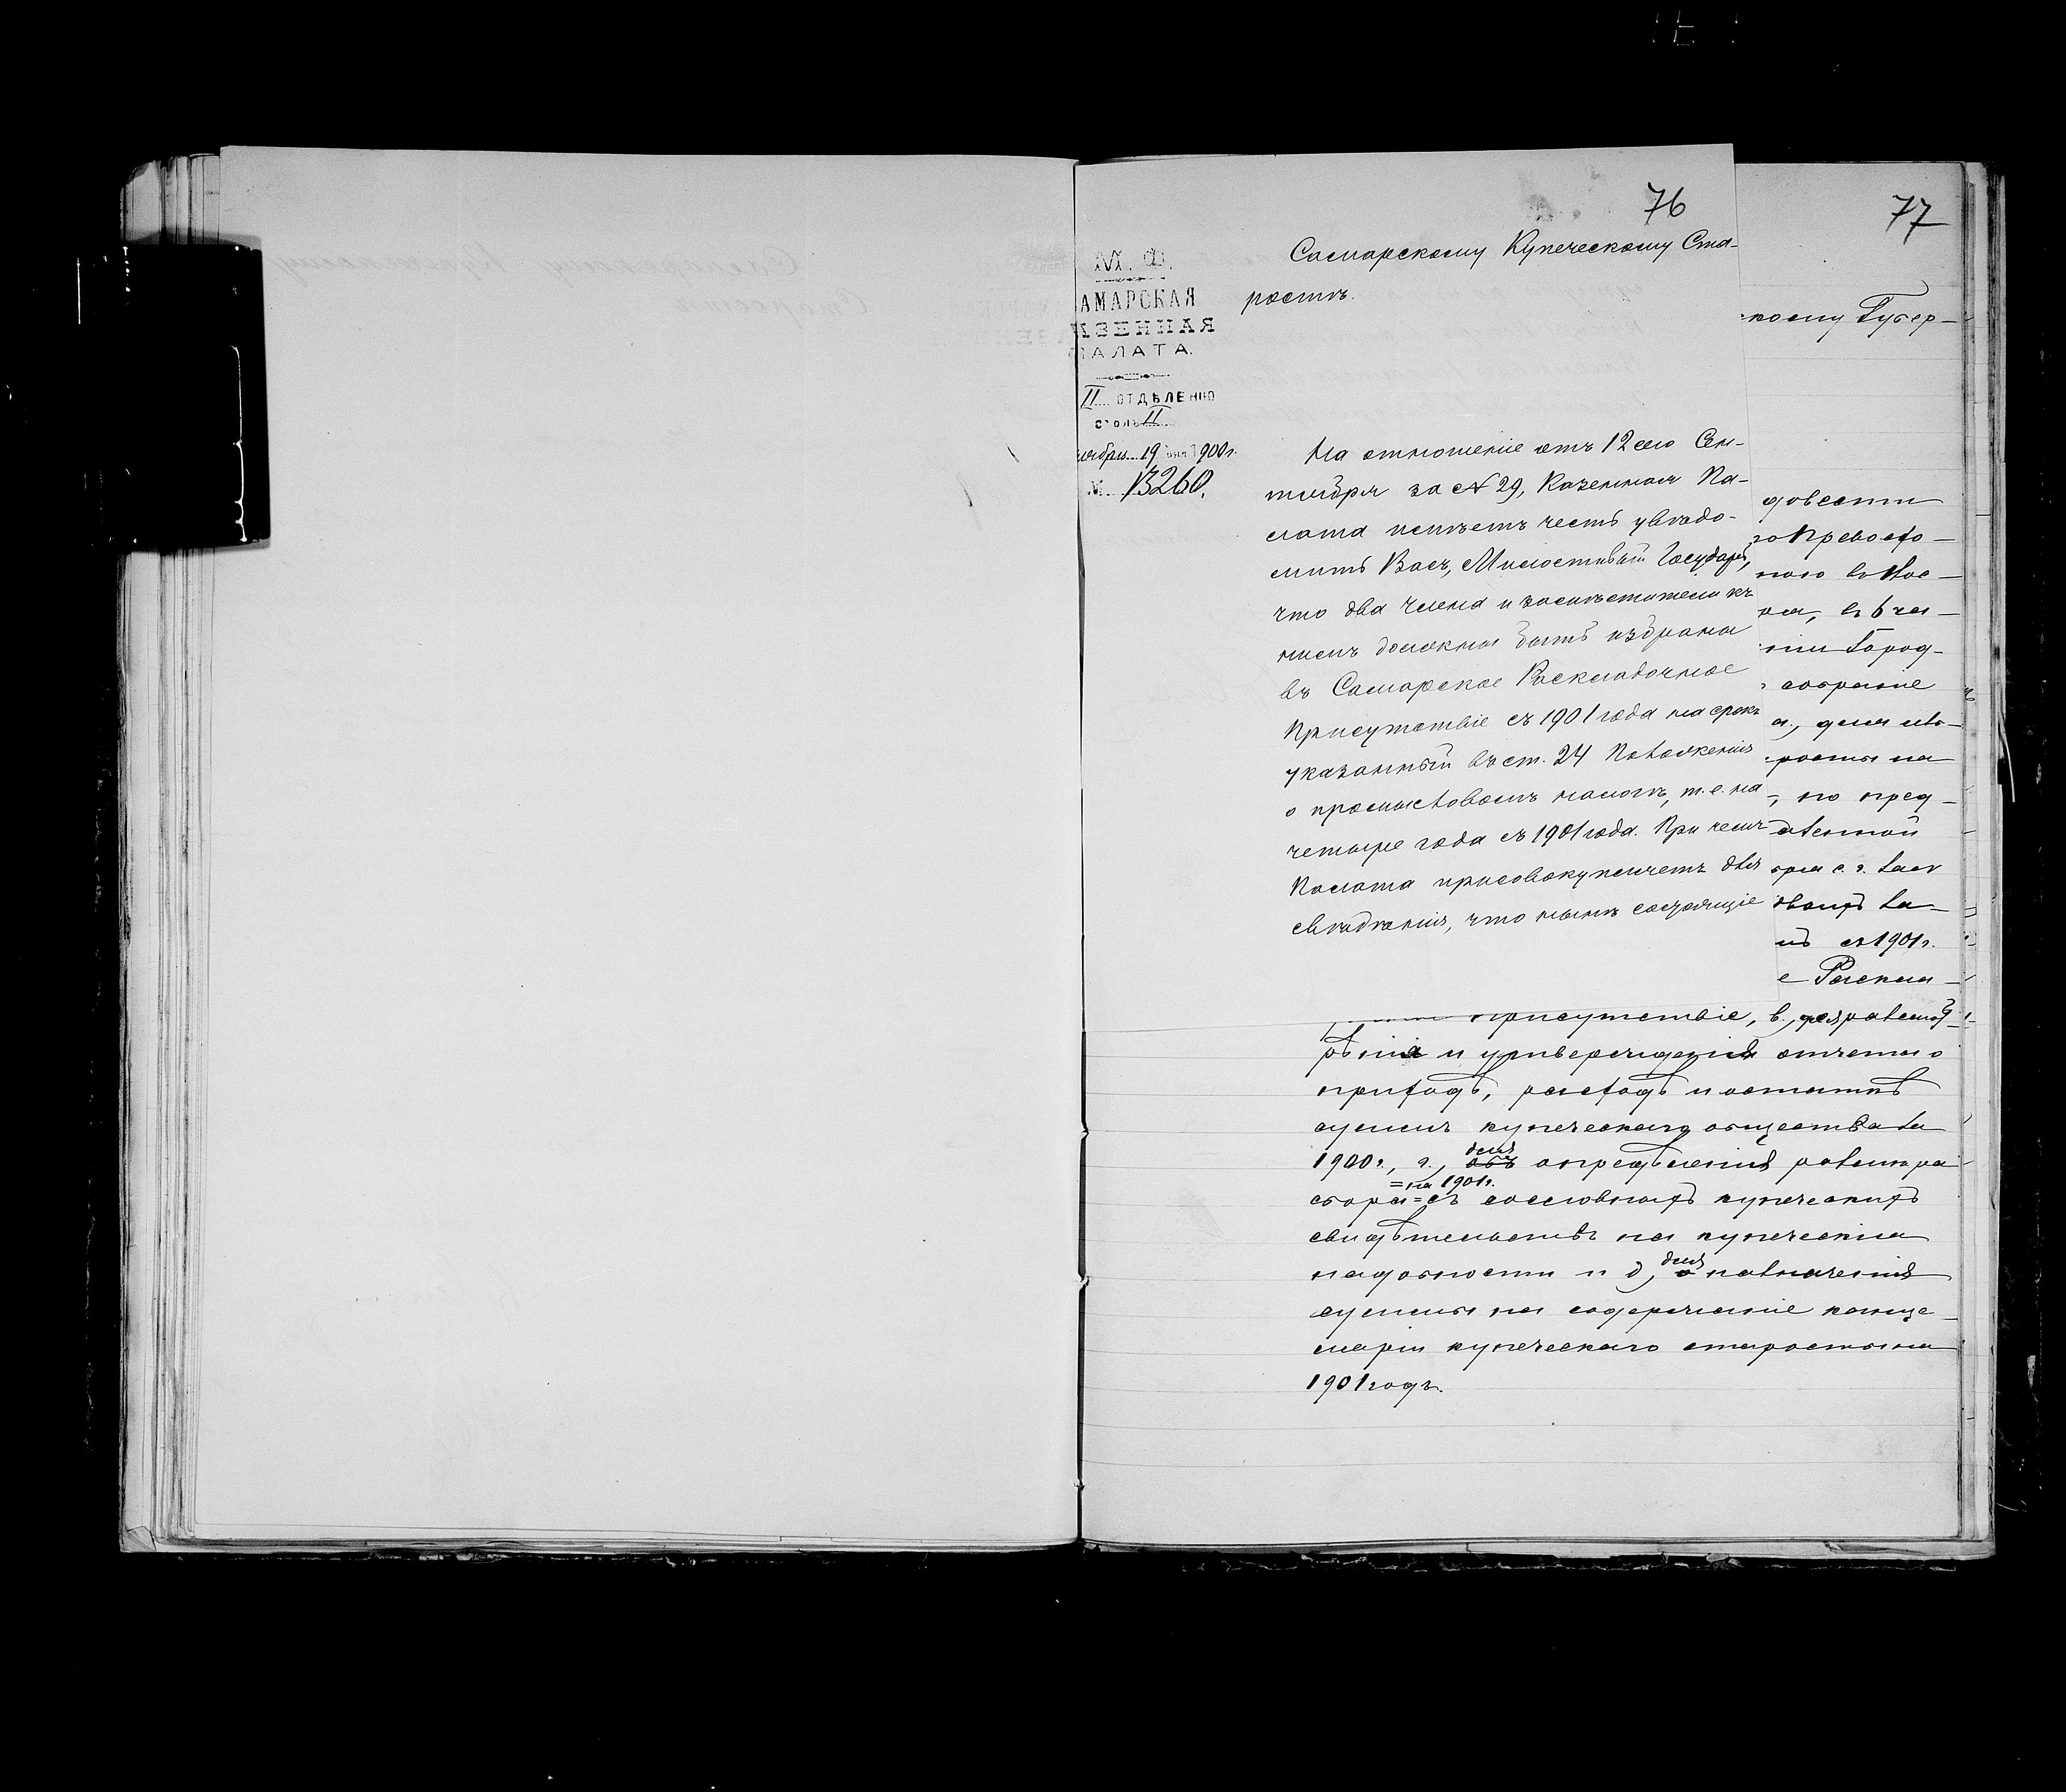 76
Самарскому Купеческому Ста-
ростѣ.
М. Ф.
АМАРСКАЯ
ЗЕННАЯ
АЛАТА.
II ОТДѢЛЕНІЕ
столъ II
ября 19 дня 1900 г.
№ 13260.
На отношеніе отъ 12 сего Сен-
тября за № 29, Казенная Па-
лата имѣетъ честь увѣдо-
мить Васъ, Милостивый Государь,
что два члена и заместители къ
нимъ должны быть избраны
въ Самарское Раскладочное
Присутствіе съ 1901 года на срокъ
указанный въ ст. 24 Положенія
о промысловомъ налогѣ, т. е. на
четыре года съ 1901 года. При чемъ
Палата присовокупляетъ для
свѣдѣнія, что нынѣ состоящіе
77
кому Губер-
довести
го Превосхо-
ра, въ 6 ча-
Город-
собраніе
а, для из-
росты на
, по пред-
ственной
бря с. г.
ъ съ 1901 г.
е Раскла-
присутствіе, в, для разсмот
рѣнія и утвержденія отчета о
приходѣ, расходѣ и остаткѣ
суммъ купеческаго общества за
1900 г., г, для объ опредѣленія размѣра
=на 1901 г.
сбора= съ сословныхъ купеческихъ
свидѣтельствъ на купеческія
надобности и д, для о назначенія
суммы на содержаніе канце-
ляріи купеческаго старосты на
1901 годъ.